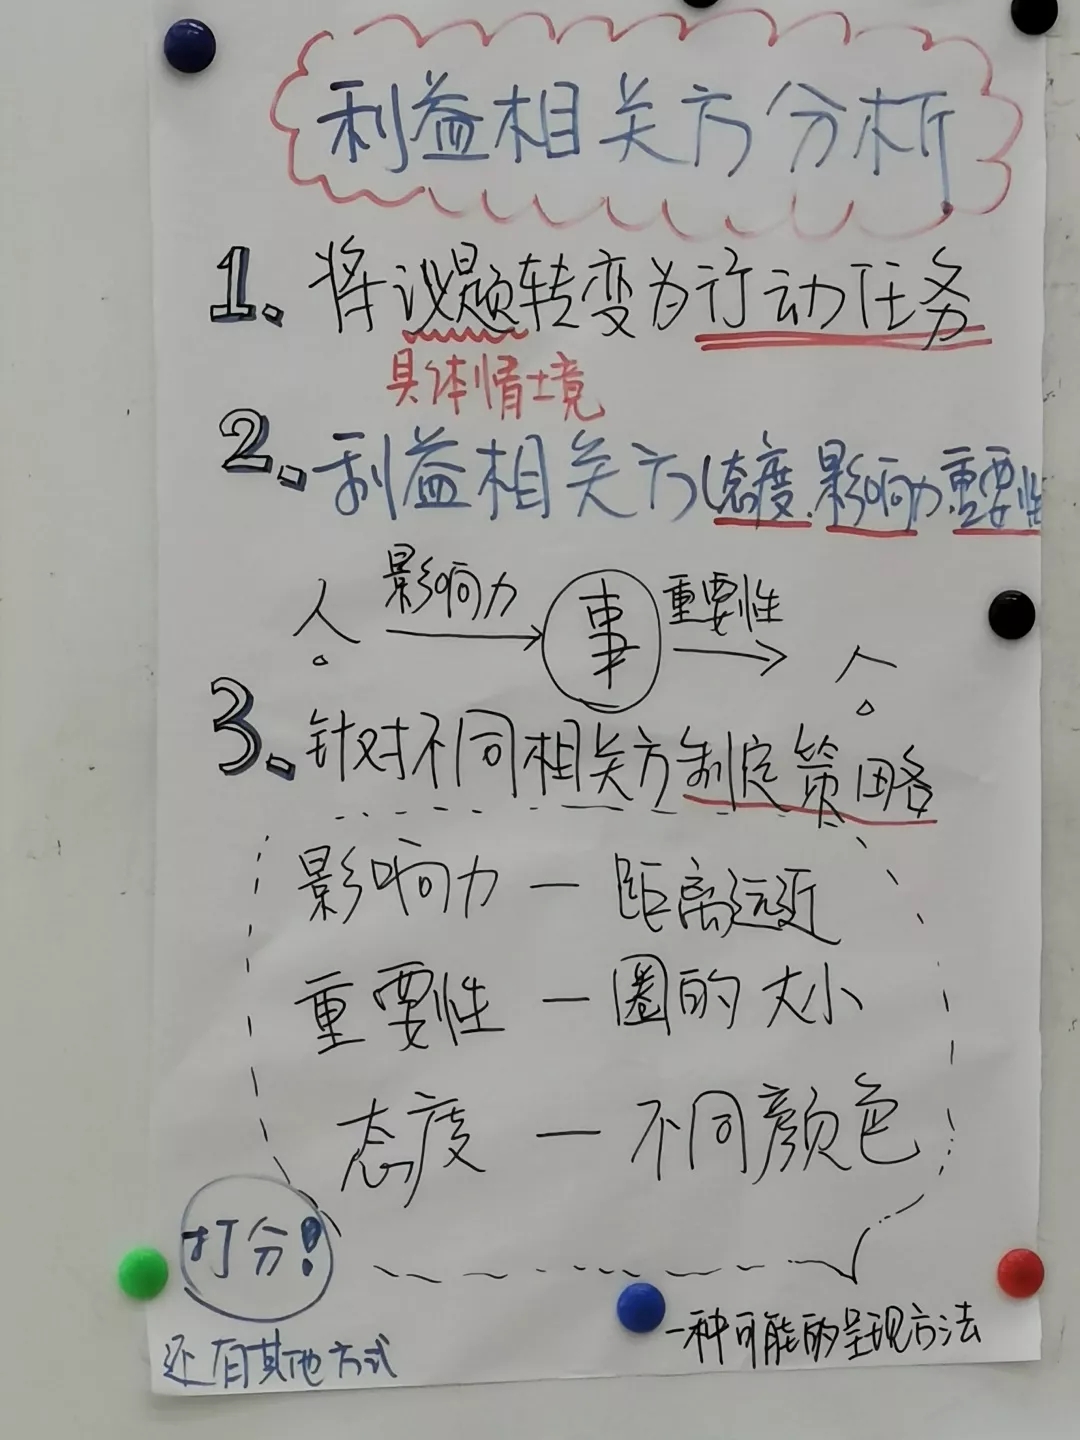 利益相关方分析
1. 将议题转变为行动任务
具体情境
2. 利益相关方(态度.影响力.重要性
人 影响力 事 重要性 人
3. 针对不同相关方制定策略
影响力 — 距离远近
重要性 — 圈的大小
态度 — 不同颜色
打分!
还有其他方式
一种可能的呈现方法